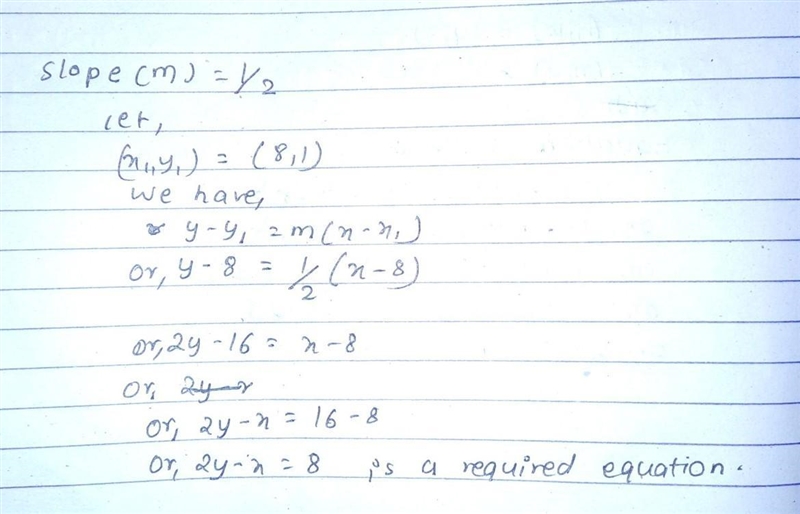 Slope (m) = 1/2
let,
(x₁, y₁) = (8, 1)
We have,
y - y₁ = m (x - x₁)
Or, y - 8 = 1/2 (x - 8)
Or, 2y - 16 = x - 8
Or,
Or, 2y - x = 16 - 8
Or, 2y - x = 8 is a required equation.